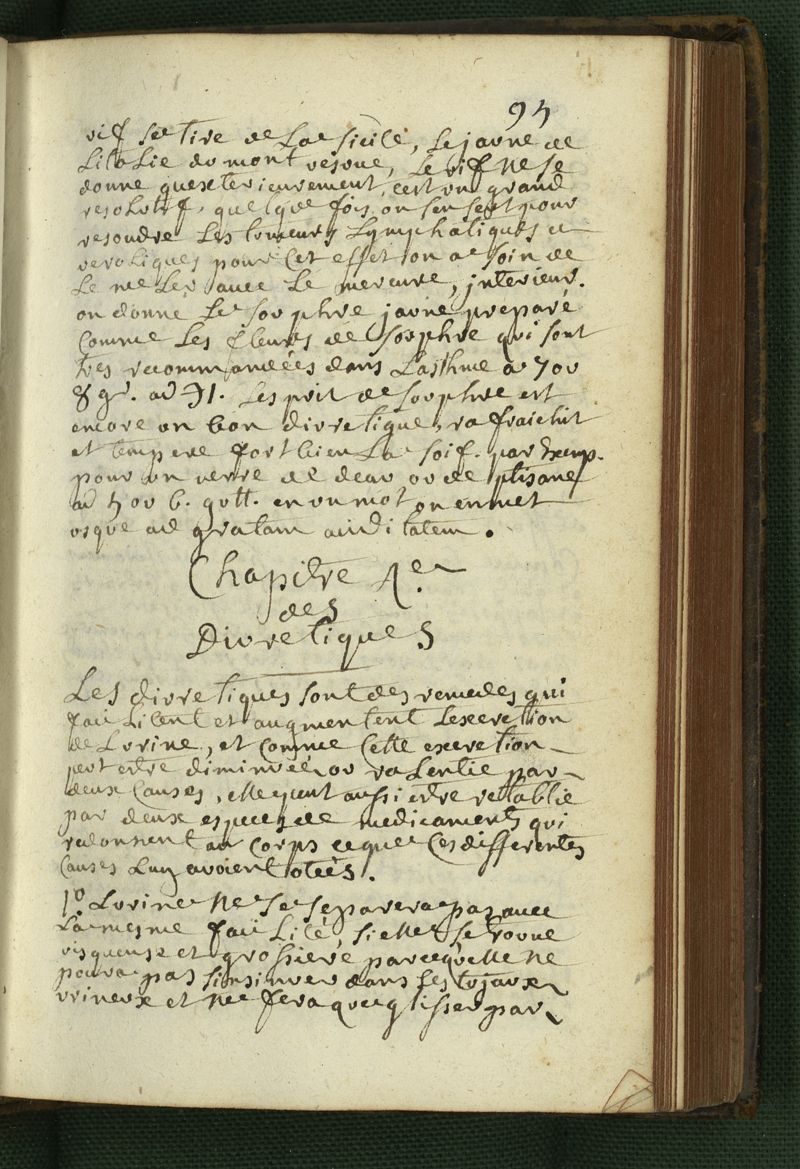 95
vif se tire de La Sicile, Le jaune de
Litalie du mont vesoue, Le vif ne se
donne quexterieurement, cest un grand
resolutif, quelque fois, on sen sert pour
resoudre Les tumeurs Lymphatiques et
veroliques pour Cet effet on a soin de
Le meLer avec Le mercure, interieur.
on donne Le souphre jaune preparé
Comme Les fleurs de souphre qui sont
tres recommandées dans Lasthme a 7 ou
8 gr. ad ℈1. Lesprit de souphre est
encore un bon diuretique, rafraichit
et tempere fort bien La soif. par Exemp.
pour un verre de deau ou de ptisane
ad 5 ou 6. gutt. en un mot on en met
usque ad gratam aciditatem.
Chapitre 1er
des
Diuretiques
Les diuretiques sont des remedes qui
faciLitent et augmentent Lexcretion
de Lurine, et comme Cette excretion
peut estre diminuée ou raLentie par
deux Causes, elle peut aussi estre retablie
par deux especes de medicaments qui
redonnent au Corps ce que Ces differentes
Causes Luy avoient otées.
1º. Lurine ne se separera pas avec
La mesme faciLité, si elle se trouve
visqueuse et grossiere parce quelle ne
poura pas sinsinuer dans Les tujaux
urineux et ne fera que glisser par